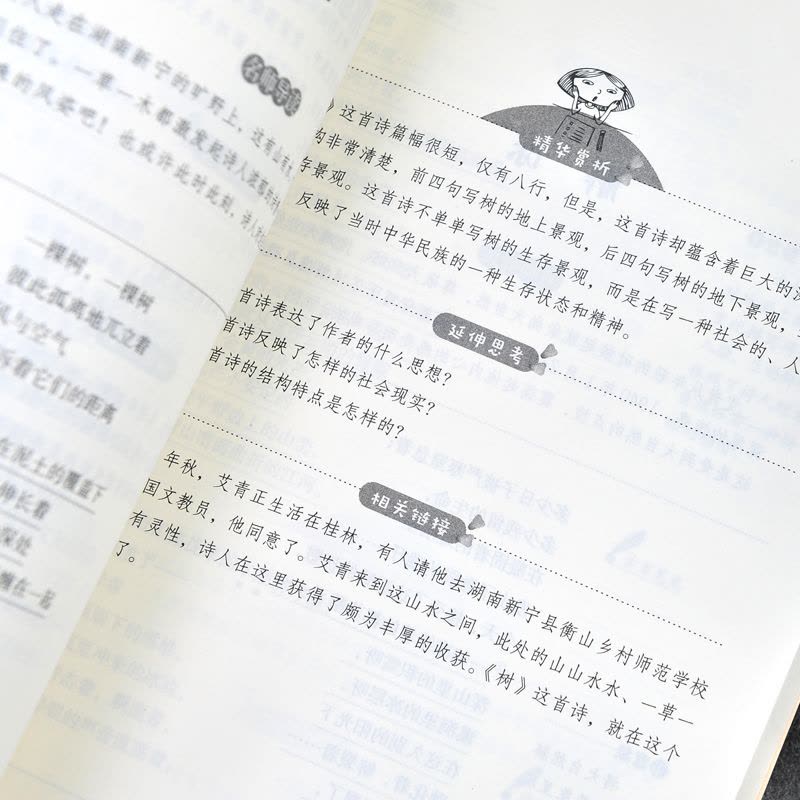 人走在湖南新宁的旷野上，这
住了。一草一木都激发起诗人
的风姿吧！也或许此时此刻，诗人
名师导读
一棵树，一棵树
彼此孤离地兀立着
风与空气
诉着它们的距离
在泥土的覆盖下
伸长着
深处
缠在一起
精华赏析
这首诗篇幅很短，仅有八行，但是，这首诗却蕴含着巨大的
构非常清楚，前四句写树的地上景观，后四句写树的地下景观，
存景观。这首诗不单单写树的生存景观，而是在写一种社会的、人
反映了当时中华民族的一种生存状态和精神。
延伸思考
首诗表达了作者的什么思想？
首诗反映了怎样的社会现实？
首诗的结构特点是怎样的？
相关链接
年秋，艾青正生活在桂林，有人请他去湖南新宁县衡山乡村师范学校
国文教员，他同意了。艾青来到这山水之间，此处的山山水水、一草一
有灵性，诗人在这里获得了颇为丰厚的收获。《树》这首诗，就在这个
了。